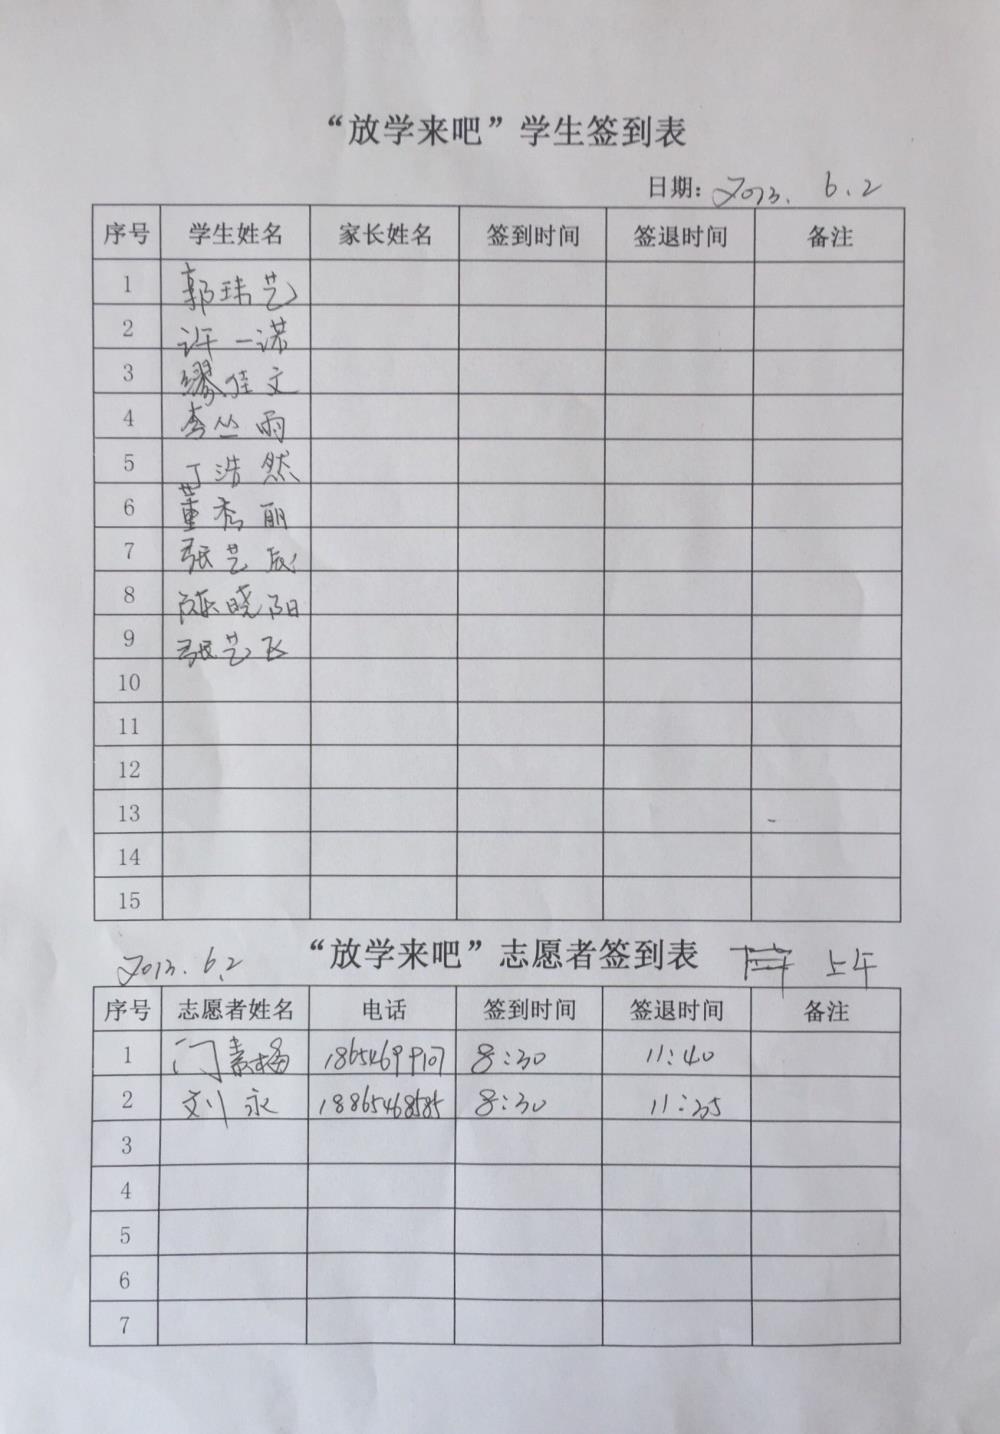 “放学来吧”学生签到表
日期: 2013. 6.2
序号 学生姓名 家长姓名 签到时间 签退时间 备注
1 郭玮艺
2 许一诺
3 缪佳文
4 李丛雨
5 丁浩然
6 董秀丽
7 张艺辰
8 陈晓阳
9 张艺飞
10
11
12
13
14
15
2013. 6.2 “放学来吧”志愿者签到表 上午
序号 志愿者姓名 电话 签到时间 签退时间 备注
1 门素梅 18654699107 8:30 11:40
2 刘永 18865468585 8:30 11:35
3
4
5
6
7